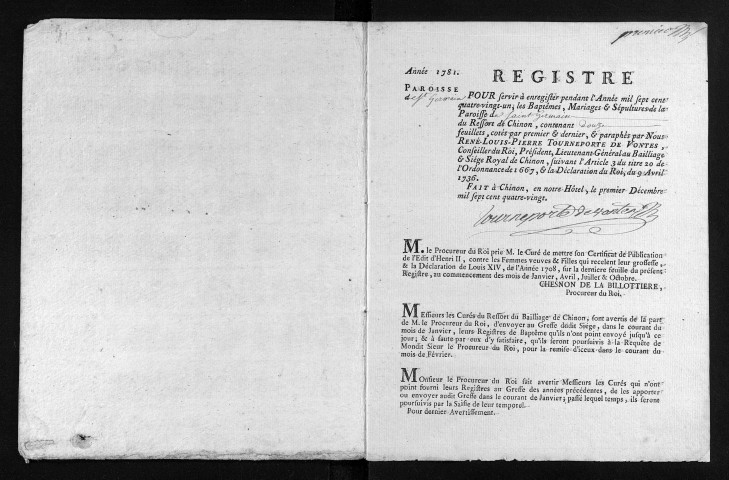 premier
Année 1781.
REGISTRE
PAROISSE
de St Germain
POUR servir à enregistrer pendant l'Année mil sept cent
quatre-vingt-un, les Baptêmes, Mariages & Sépultures de la
Paroisse de Saint Germain
du Ressort de Chinon, contenant douze
feuillets, cotés par premier & dernier, & paraphés par Nous
RENÉ-LOUIS-PIERRE TOURNEPORTE DE VONTES,
Conseiller du Roi, Président, Lieutenant-Général au Bailliage
& Siége Royal de Chinon, suivant l'Article 3 du titre 20 de
l'Ordonnance de 1667, & la Déclaration du Roi, du 9 Avril
1736.
FAIT à Chinon, en notre Hôtel, le premier Décembre
mil sept cent quatre-vingt.
Tourneporte de vontes
M. le Procureur du Roi prie M. le Curé de mettre son Certificat de Publication
de l'Edit d'Henri II, contre les Femmes veuves & Filles qui recelent leur grossesse,
& la Déclaration de Louis XIV, de l'Année 1708, sur la derniere feuille du présent
Registre, au commencement des mois de Janvier, Avril, Juillet & Octobre.
CHESNON DE LA BILLOTTIERE,
Procureur du Roi.
Messieurs les Curés du Ressort du Bailliage de Chinon, sont avertis de la part
de M. le Procureur du Roi, d'envoyer au Greffe dudit Siége, dans le courant du
mois de Janvier, leurs Registres de Baptême qu'ils n'ont point envoyé jusqu'à ce
jour; & à faute par eux d'y satisfaire, qu'ils seront poursuivis à la Requête de
Mondit Sieur le Procureur du Roi, pour la remise d'iceux dans le courant du
mois de Février.
Monsieur le Procureur du Roi fait avertir Messieurs les Curés qui n'ont
point fourni leurs Registres au Greffe des années précédentes, de les apporter
ou envoyer audit Greffe dans le courant de Janvier; passé lequel temps, ils seront
poursuivis par la Saisie de leur temporel.
Pour dernier Avertissement.